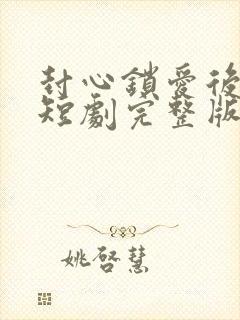 封心鎖愛後
短劇完整版
姚啓慧